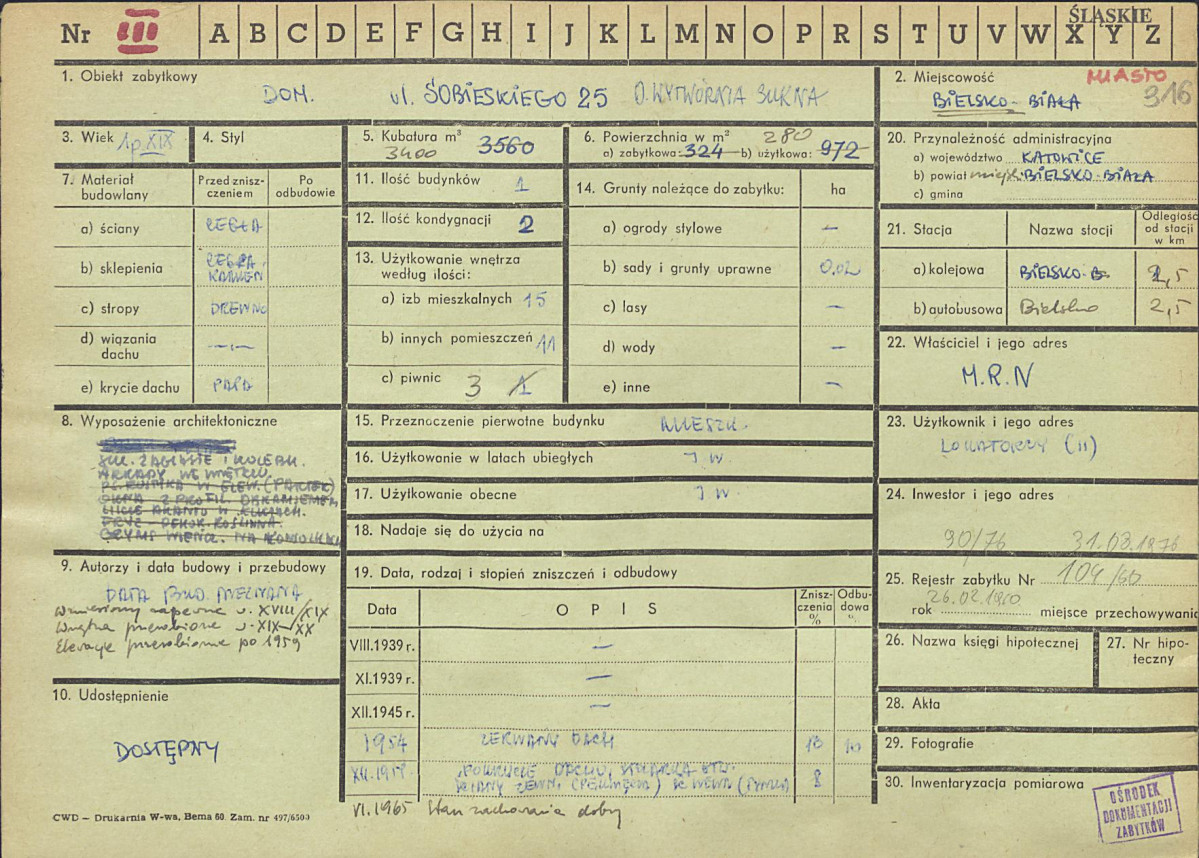 Nr III A B C D E F G H I J K L M N O P R S T U V W X Y Z
ŚLĄSKIE
1. Obiekt zabytkowy
DOM. ul. SOBIESKIEGO 25 D. WYTWÓRNIA SUKNA
2. Miejscowość MIASTO
BIELSKO-BIAŁA 316
3. Wiek 1p. XIX
4. Styl
5. Kubatura m³ 3560
3400
6. Powierzchnia w m² 280
a) zabytkowa: 324 b) użytkowa: 972
7. Materiał budowlany
Przed zniszczeniem
Po odbudowie
a) ściany CEGŁA
b) sklepienia CEGŁA KAMIEŃ
c) stropy DREWNO
d) wiązania dachu —„—
e) krycie dachu PAPA
8. Wyposażenie architektoniczne
ARKADY
OKNA Z PROFIL.
LIŚCIE AKANTU W
FRYZ - DEKOR. ROŚLINNA.
GZYMS WIEŃCZ. NA
9. Autorzy i data budowy i przebudowy
DATA BUD. NIEZNANA
Wzniesiony zapewne u. XVIII/XIX
Wnętrza przerobione u. XIX-XX
Elewacje przerobione po 1959
10. Udostępnienie
DOSTĘPNY
11. Ilość budynków 1
12. Ilość kondygnacji 2
13. Użytkowanie wnętrza
według ilości:
a) izb mieszkalnych 15
b) innych pomieszczeń 11
c) piwnic 3 1
14. Grunty należące do zabytku: ha
a) ogrody stylowe —
b) sady i grunty uprawne 0.02
c) lasy —
d) wody —
e) inne —
15. Przeznaczenie pierwotne budynku MIESZK.
16. Użytkowanie w latach ubiegłych J W.
17. Użytkowanie obecne J W.
18. Nadaje się do użycia na
19. Data, rodzaj i stopień zniszczeń i odbudowy
Data
O P I S
Zniszczenia %
Odbudowa %
VIII.1939 r. —
XI.1939 r. —
XII.1945 r. —
1954 ZERWANY DACH 10
8
VI.1965 Stan zachowania dobry
20. Przynależność administracyjna
a) województwo KATOWICE
b) powiat miejsk. BIELSKO-BIAŁA
c) gmina
21. Stacja
Nazwa stacji
Odległość od stacji w km
a) kolejowa BIELSKO-B 2,5
b) autobusowa Bielsko 2,5
22. Właściciel i jego adres
M.R.N
23. Użytkownik i jego adres
LOKATORZY (11)
24. Inwestor i jego adres
90/76 31.03.1976
25. Rejestr zabytku Nr 104/60
26.02.1960
rok miejsce przechowywania
26. Nazwa księgi hipotecznej
27. Nr hipoteczny
28. Akta
29. Fotografie
30. Inwentaryzacja pomiarowa
OŚRODEK
DOKUMENTACJI
ZABYTKÓW
CWD — Drukarnia W-wa, Bema 60. Zam. nr 497/6500